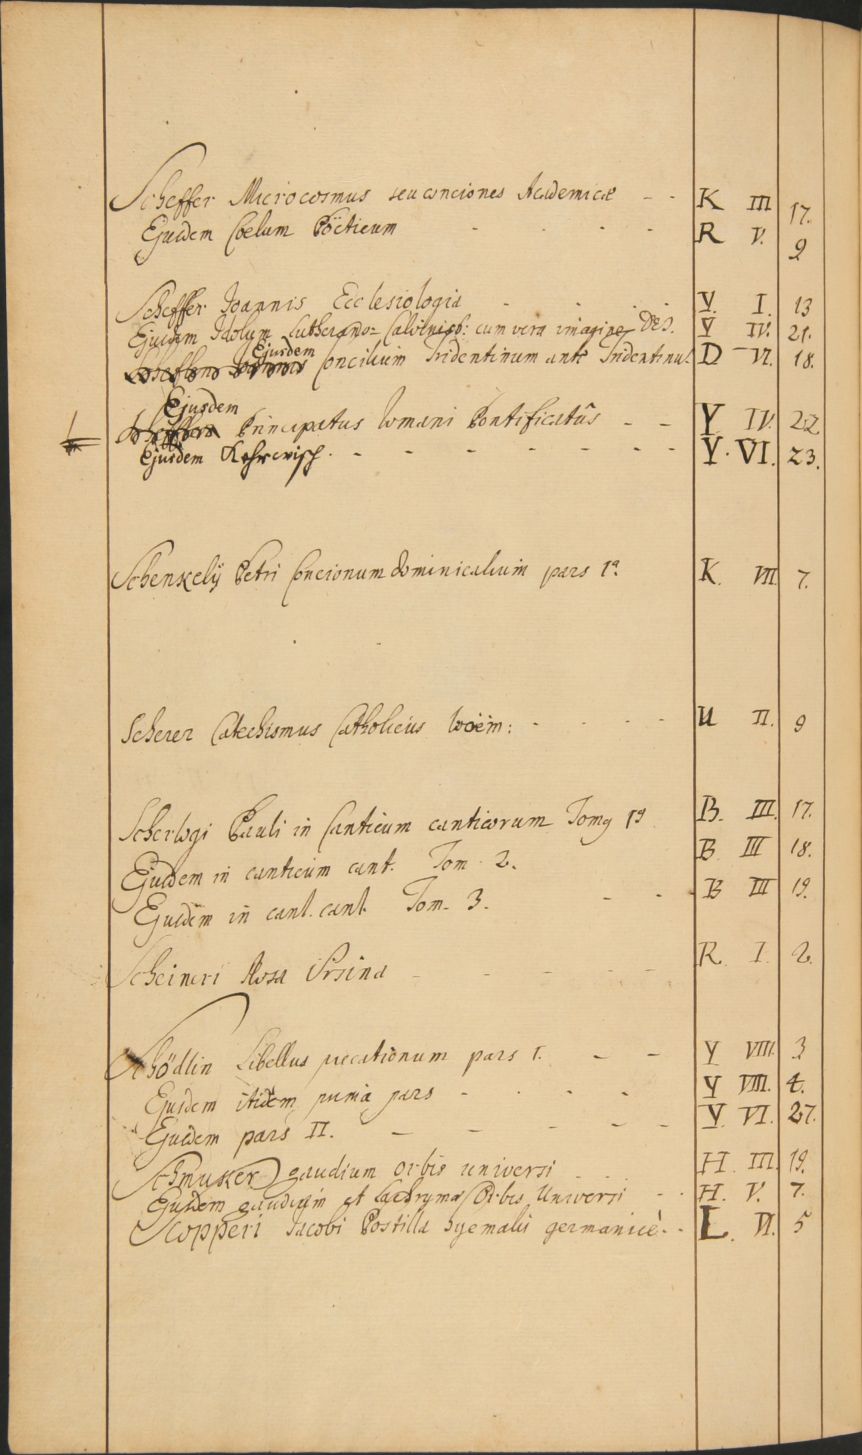 Scheffer Microcosmus seu conciones Academicæ - - K III 17.
Ejusdem Coelum Pöeticum - - - - R V. 9
Scheffer Joannis Ecclesiologia - - - - Y. I. 13
Ejusdem Idolum Lutherano- Calvinist: cum vera imagine DEI. Y IV. 21.
Ejusdem Concilium Tridentinum ante Tridentinū. D VI. 18.
Ejusdem
Principatus Romani Pontificatûs - - Y IV. 22
Ejusdem Kehrwisch. - - - - - - - Y. VI. 23.
Schenkelij Petri Concionum dominicalium pars 1ª. K. VII. 7.
Scherer Catechismus Catholicus boëm: - - - - U II. 9
Scherlogi Pauli in Canticum canticorum Tomg 1g B. III. 17.
Ejusdem in canticum cant. Tom. 2. B III 18.
Ejusdem in cant. cant. Tom. 3. - - B III 19.
Scheineri Rosa Ursina - - - - - R. I. 2.
Schödlin Libellus precationum pars I. - - Y VIII. 3
Ejusdem itidem prima pars - - - - Y VIII. 4.
Ejusdem pars II. - - - - - Y. VI. 27.
Schmuker gaudium orbis universi - - - H. III. 19.
Ejusdem gaudium et Lachrymæ Orbis Universi - - H. V. 7.
Scopperi Jacobi Postilla hyemalis germanicè. - L. VI. 5